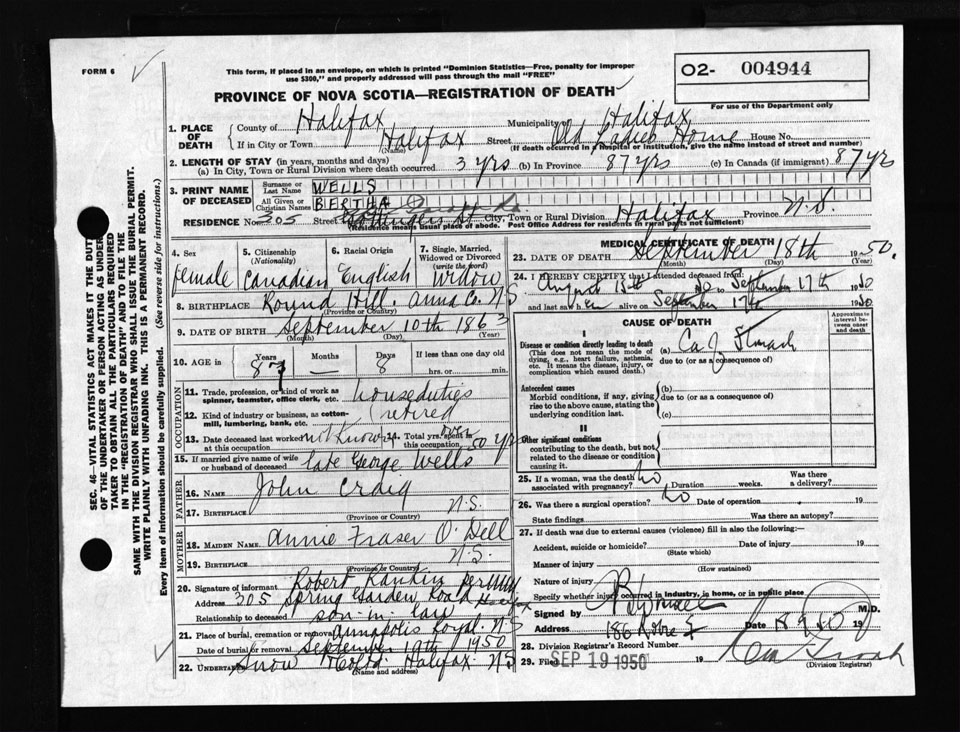 FORM 6
This form, if placed in an envelope, on which is printed "Dominion Statistics—Free, penalty for improper
use $300," and properly addressed will pass through the mail "FREE"
O2- 004944
For use of the Department only
PROVINCE OF NOVA SCOTIA—REGISTRATION OF DEATH
1. PLACE OF DEATH
County of Halifax Municipality of Halifax
If in City or Town Halifax Street Old Ladies Home House No.
(Name) (If death occurred in a hospital or institution, give the name instead of street and number)
2. LENGTH OF STAY (in years, months and days)
(a) In City, Town or Rural Division where death occurred 3 yrs (b) In Province 87 yrs (c) In Canada (if immigrant) 87 yrs
3. PRINT NAME OF DECEASED
Surname or Last Name WELLS
All Given or Christian Names BERTHA
RESIDENCE No 305 Street City, Town or Rural Division Halifax Province N.S.
(Residence means usual place of abode. Post Office Address for residents in rural parts not sufficient)
4. Sex
female
5. Citizenship
(Nationality)
Canadian
6. Racial Origin
English
7. Single, Married, Widowed or Divorced
(write the word)
Widow
8. BIRTHPLACE Round Hill. Anna Co. N S
(Province or Country)
9. DATE OF BIRTH September 10th 1863
(Month) (Day) (Year)
10. AGE in Years Months Days If less than one day old
87 — 8 hrs. or min.
OCCUPATION
11. Trade, profession, or kind of work as
spinner, teamster, office clerk, etc. houseduties
12. Kind of industry or business, as cotton-
mill, lumbering, bank, etc. (retired
13. Date deceased last worked
at this occupation not known
14. Total yrs. spent in
this occupation over 50 yrs
15. If married give name of wife
or husband of deceased late George Wells
FATHER
16. NAME John Craig
17. BIRTHPLACE N.S.
(Province or Country)
MOTHER
18. MAIDEN NAME Annie Fraser O'Dell
19. BIRTHPLACE N.S.
(Province or Country)
20. Signature of informant Robert Rankin per
Address 305 Spring Garden Road Halifax
Relationship to deceased son in law
21. Place of burial, cremation or removal Annapolis Royal. N.S
Date of burial or removal September 19th 1950
22. UNDERTAKER Snow & Co Ltd. Halifax. N S
(Name and address)
MEDICAL CERTIFICATE OF DEATH
23. DATE OF DEATH September 18th 1950.
(Month) (Day)
24. I HEREBY CERTIFY that I attended deceased from
August 15th 50 to September 17th 1950
and last saw her alive on September 17th 1950
CAUSE OF DEATH
Approximate interval between onset and death
I
Disease or condition directly leading to death
(This does not mean the mode of
dying, e.g., heart failure, asthenia,
etc. It means the disease, injury, or
complication which caused death.)
(a) Ca of Stomach
due to (or as a consequence of)
Antecedent causes
Morbid conditions, if any, giving
rise to the above cause, stating the
underlying condition last.
(b)
due to (or as a consequence of)
(c)
II
Other significant conditions
contributing to the death, but not
related to the disease or condition
causing it.
25. If a woman, was the death
associated with pregnancy? no Duration weeks. Was there
a delivery?
26. Was there a surgical operation? no Date of operation 19
State findings Was there an autopsy?
27. If death was due to external causes (violence) fill in also the following:—
Accident, suicide or homicide? Date of injury 19
(State which)
Manner of injury
(How sustained)
Nature of injury
Specify whether injury occurred in Industry, in home, or in public place
Signed by M.D.
Address 186 Date 18 9 50 19
28. Division Registrar's Record Number
29. Filed SEP 19 1950 19
(Division Registrar)
SEC. 46—VITAL STATISTICS ACT MAKES IT THE DUTY
OF THE UNDERTAKER OR PERSON ACTING AS UNDER-
TAKER TO OBTAIN ALL THE PARTICULARS REQUIRED
IN THE "REGISTRATION OF DEATH" AND TO FILE THE
SAME WITH THE DIVISION REGISTRAR WHO SHALL ISSUE THE BURIAL PERMIT.
WRITE PLAINLY WITH UNFADING INK. THIS IS A PERMANENT RECORD.
Every item of information should be carefully supplied. (See reverse side for instructions.)